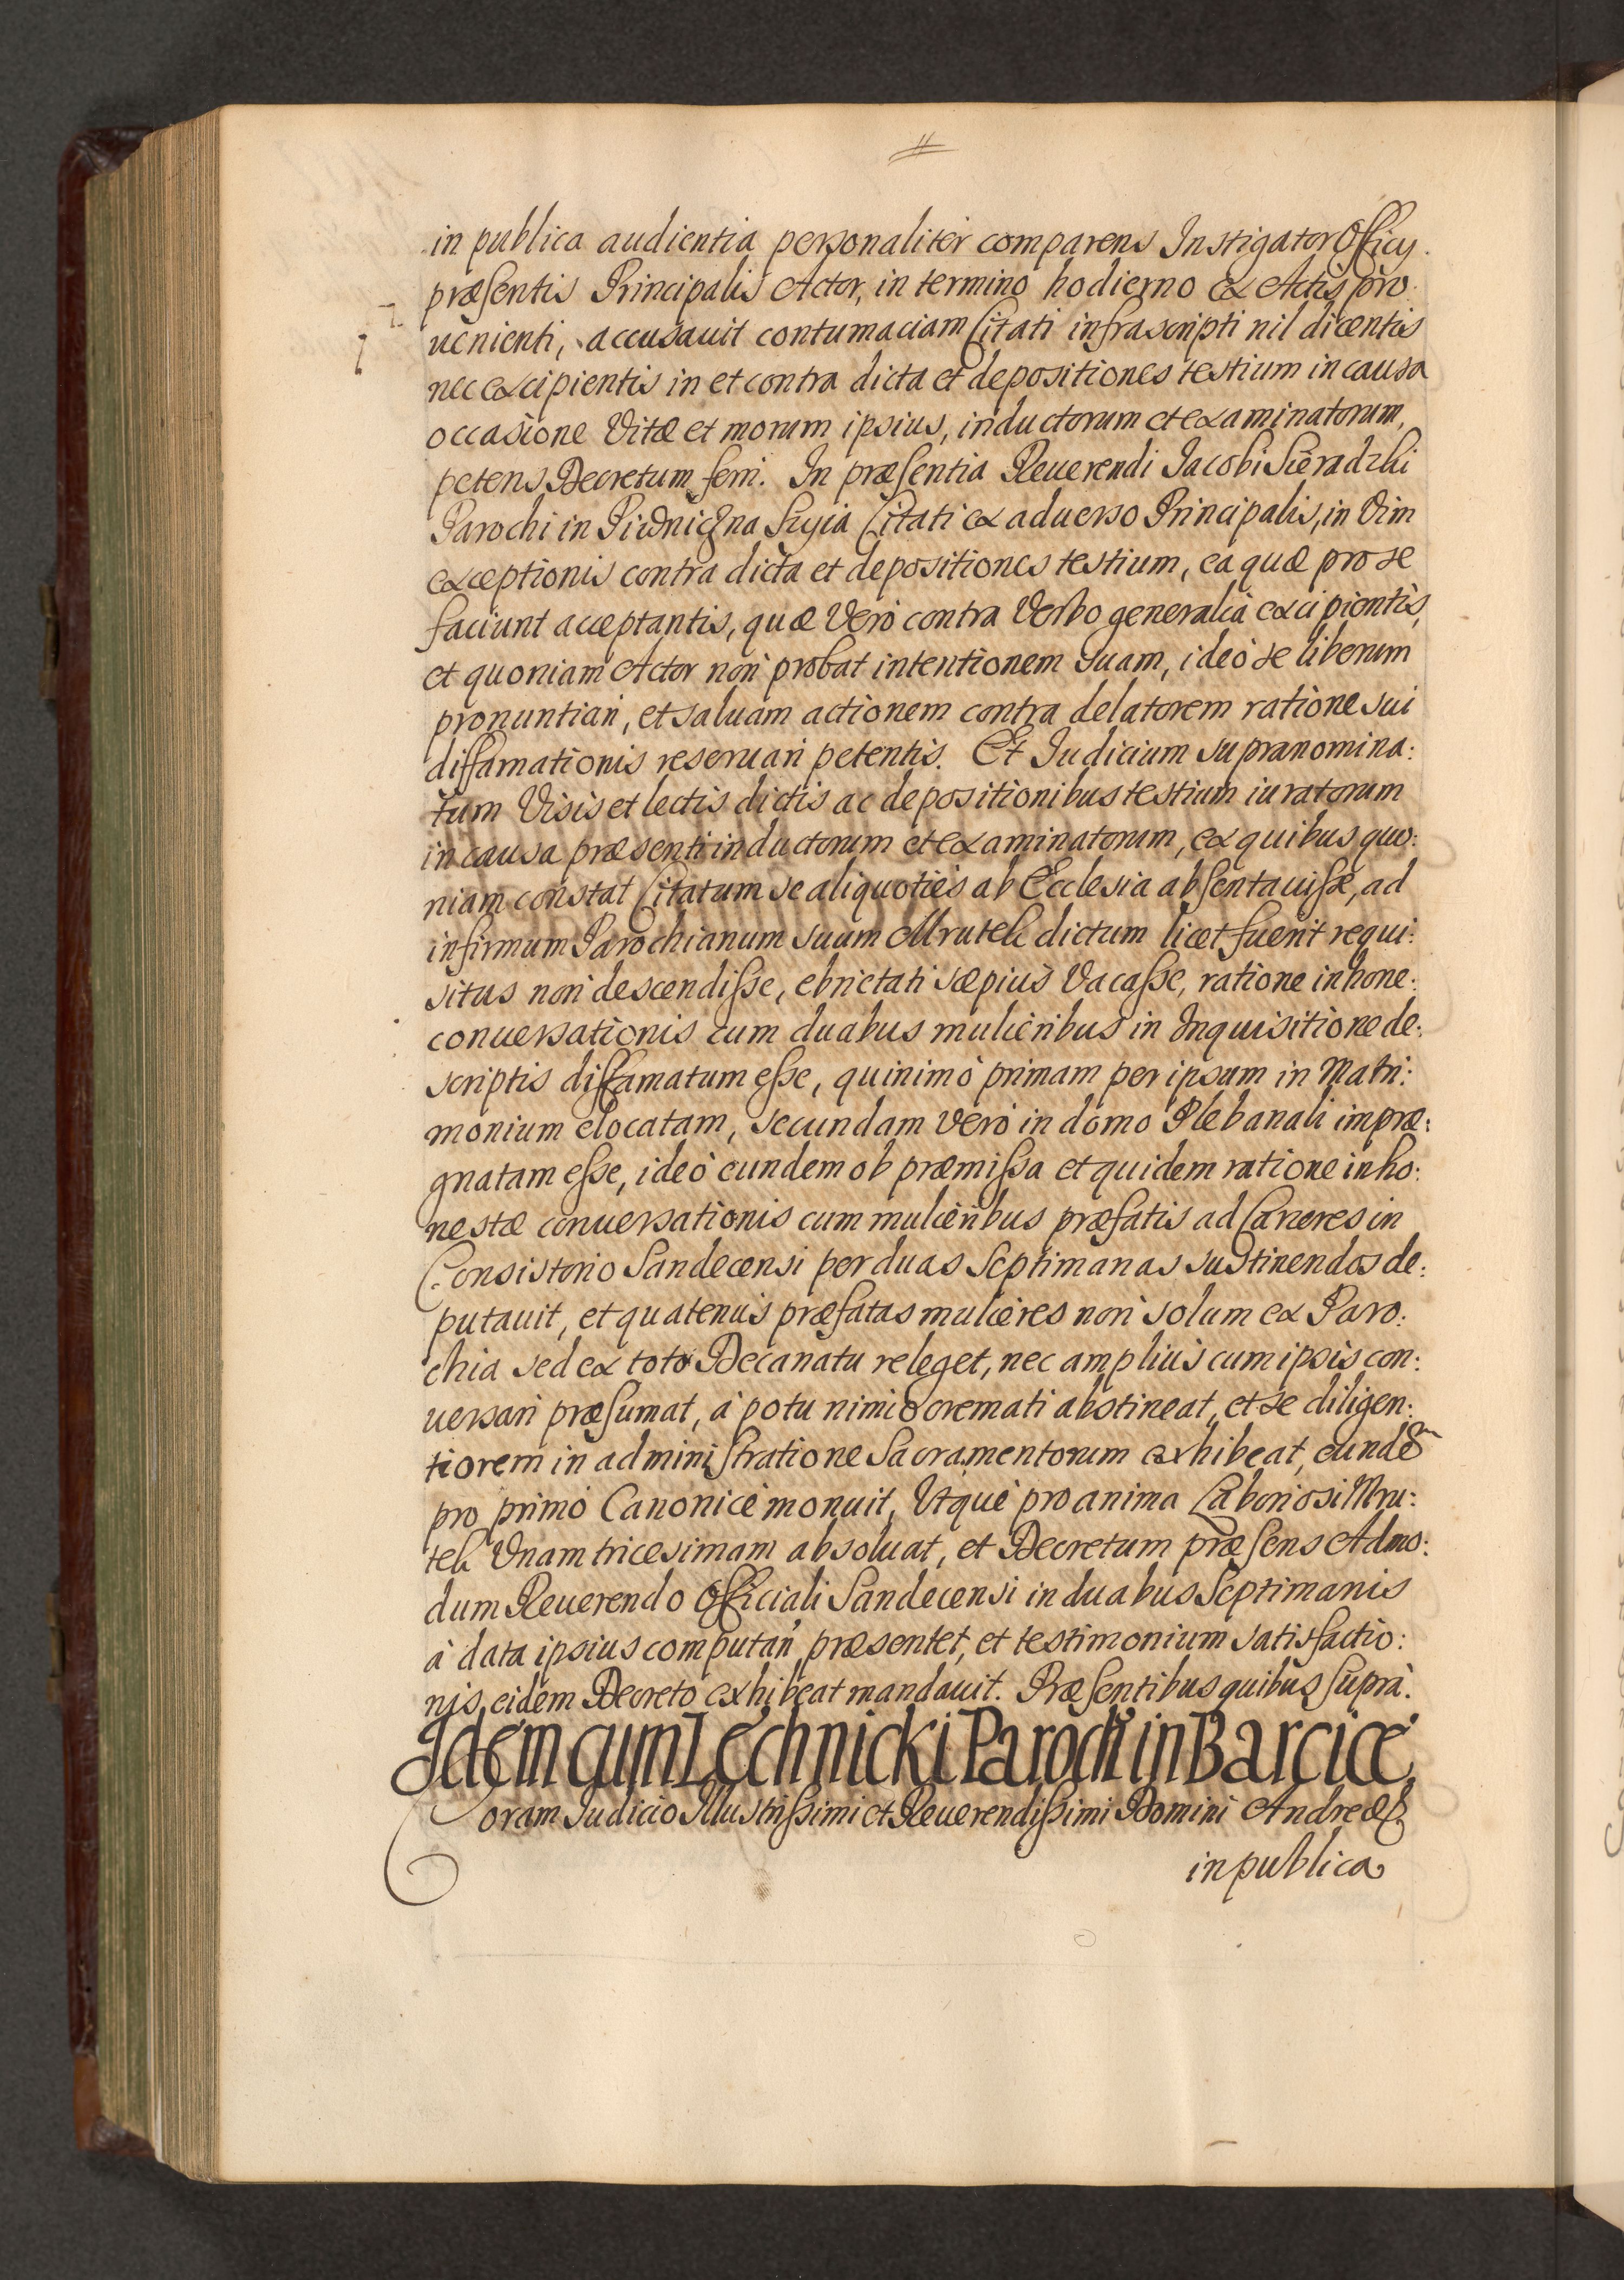 in publica audientia personaliter comparens Instigator Officij
præsentis Principalis Actor, in termino hodierno ex Actis pro:
uenienti, accusauit contumaciam Citati infrascripti nil dicentis
nec excipientis in et contra dicta et depositiones testium in causa
occasione Vitæ et morum ipsius, inductorum et examinatorum,
petens Decretum ferri. In præsentia Reuerendi Jacobi Sieradzki
Parochi in Piwniczna Szyia Citati ex aduerso Principalis, in Vim
exceptionis contra dicta et depositiones testium, ea quæ pro se
faciunt acceptantis, quæ Verò contra Verbo generalia excipientis,
et quoniam Actor non probat intentionem suam, ideò se liberum
pronuntiari, et saluam actionem contra delatorem ratione sui
diffamationis reseruari petentis. Et Iudicium supranomina:
tum Visis et lectis dictis ac depositionibus testium iuratorum
in causa præsenti inductorum et examinatorum, ex quibus quo:
niam constat Citatum se aliquoties ab Ecclesia absentauisse, ad
infirmum Parochianum suum Mrutek dictum licet fuerit requi:
situs non descendisse, ebrietati sæpius Vacasse, ratione inhone:
conuersationis cum duabus mulieribus in Inquisitione de:
scriptis diffamatum esse, quinimò primam per ipsum in Matri:
monium elocatam, secundam verò in domo Plebanali impræ:
gnatam esse, ideò eundem ob præmissa et quidem ratione inho:
nestæ conuersationis cum mulieribus præfatis ad Carceres in
Consistorio Sandecensi per duas Septimanas sustinendos de:
putauit, et quatenus præfatas mulieres non solum ex Paro:
chia sed ex toto Decanatu releget, nec amplius cum ipsis con:
uersari præsumat, à potu nimio cremati abstineat, et se diligen:
tiorem in administratione Sacramentorum exhibeat, eundem
pro primo Canonicè monuit, Vtque pro anima Laboriosi Mru:
tek Vnam tricesimam absoluat, et Decretum præsens Admo:
dum Reuerendo Officiali Sandecensi in duabus Septimanis
à data ipsius computan præsentet, et testimonium satisfactio:
nis eidem Decreto exhibeat mandauit. Præsentibus quibus suprà.
Idem cum Lechnicki Parocho in Barcice
Coram Iudicio Illustrissimi et Reuerendissimi Domini Andreæ
in publica